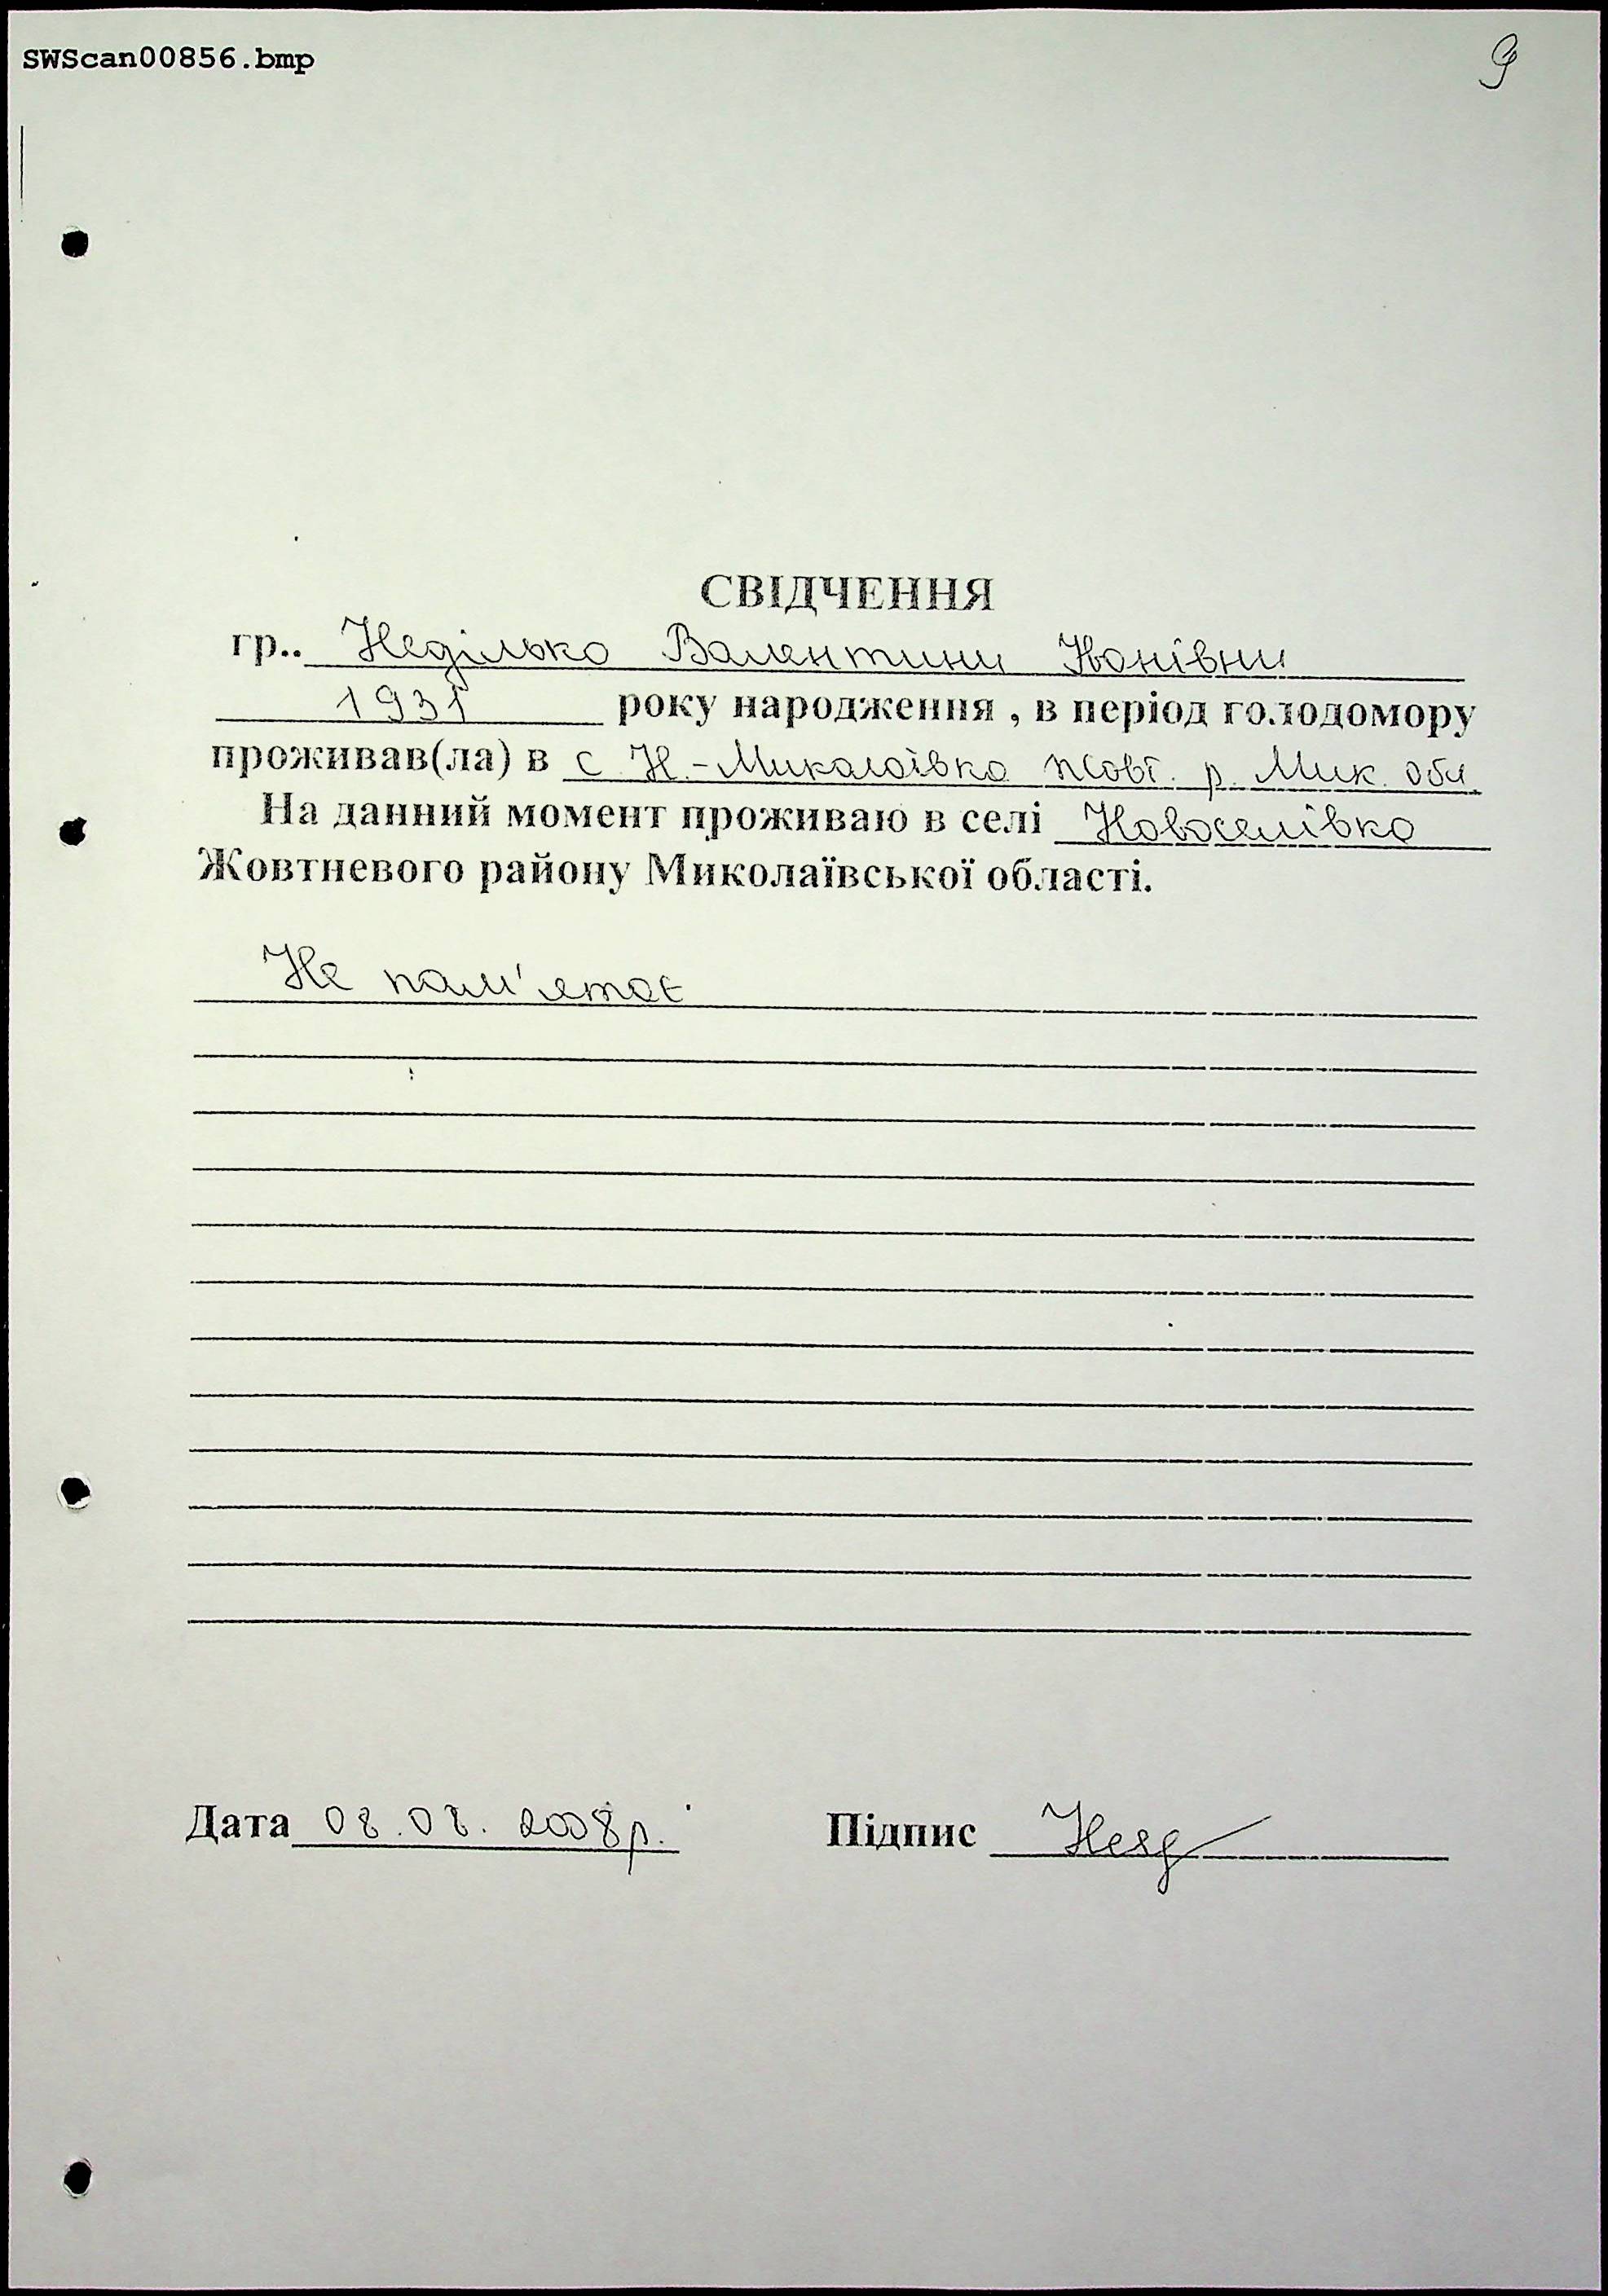 SWScan00856.bmp
9
СВІДЧЕННЯ
гр.. Неділько Валентини Йонівни
1931 року народження , в період голодомору
проживав(ла) в с. Н.-Миколаївка Жовт. р. Мик. обл.
На данний момент проживаю в селі Новоселівка
Жовтневого району Миколаївської області.
Не пам'ятає
Дата 08.08.2008р. Підпис